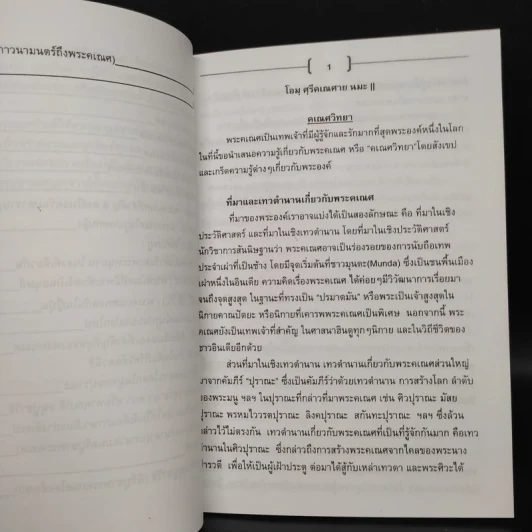 ภาวนามนตร์ถึงพระคเณศ)
1
โอมฺ ศฺรีคเณศาย นมะ ||
คเณศวิทยา
พระคเณศเป็นเทพเจ้าที่มีผู้รู้จักและรักมากที่สุดพระองค์หนึ่งในโลก
ในที่นี้ขอนำเสนอความรู้เกี่ยวกับพระคเณศ หรือ "คเณศวิทยา"โดยสังเขป
และเกร็ดความรู้ต่างๆเกี่ยวกับพระองค์
ที่มาและเทวตำนานเกี่ยวกับพระคเณศ
ที่มาของพระองค์เราอาจแบ่งได้เป็นสองลักษณะ คือ ที่มาในเชิง
ประวัติศาสตร์ และที่มาในเชิงเทวตำนาน โดยที่มาในเชิงประวัติศาสตร์
นักวิชาการสันนิษฐานว่า พระคเณศอาจเป็นร่องรอยของการนับถือเทพ
ประจำเผ่าที่เป็นช้าง โดยมีจุดเริ่มต้นที่ชาวมุนดะ(Munda) ซึ่งเป็นชนพื้นเมือง
เผ่าหนึ่งในอินเดีย ความคิดเรื่องพระคเณศ ได้ค่อยๆมีวิวัฒนาการเรื่อยมา
จนถึงจุดสูงสุด ในฐานะที่ทรงเป็น "ปรมาตมัน" หรือพระเป็นเจ้าสูงสุดใน
นิกายคาณปัตยะ หรือนิกายที่เคารพพระคเณศเป็นพิเศษ นอกจากนี้ พระ
คเณศยังเป็นเทพเจ้าที่สำคัญ ในศาสนาฮินดูทุกๆนิกาย และในวิถีชีวิตของ
ชาวอินเดียอีกด้วย
ส่วนที่มาในเชิงเทวตำนาน เทวตำนานเกี่ยวกับพระคเณศส่วนใหญ่
มาจากคัมภีร์ "ปุราณะ" ซึ่งเป็นคัมภีร์ว่าด้วยเทวตำนาน การสร้างโลก ลำดับ
ของพระมนู ฯลฯ ในปุราณะที่กล่าวที่มาพระคเณศ เช่น ศิวปุราณะ มัสย
ปุราณะ พรหมไววรตปุราณะ ลิงคปุราณะ สกันทะปุราณะ ฯลฯ ซึ่งล้วน
กล่าวไว้ไม่ตรงกัน เทวตำนานเกี่ยวกับพระคเณศที่เป็นที่รู้จักกันมาก คือเทว
ตำนานในศิวปุราณะ ซึ่งกล่าวถึงการสร้างพระคเณศจากไคลของพระนาง
ปารวตี เพื่อให้เป็นผู้เฝ้าประตู ต่อมาได้สู้กับเหล่าเทวดา และพระศิวะได้